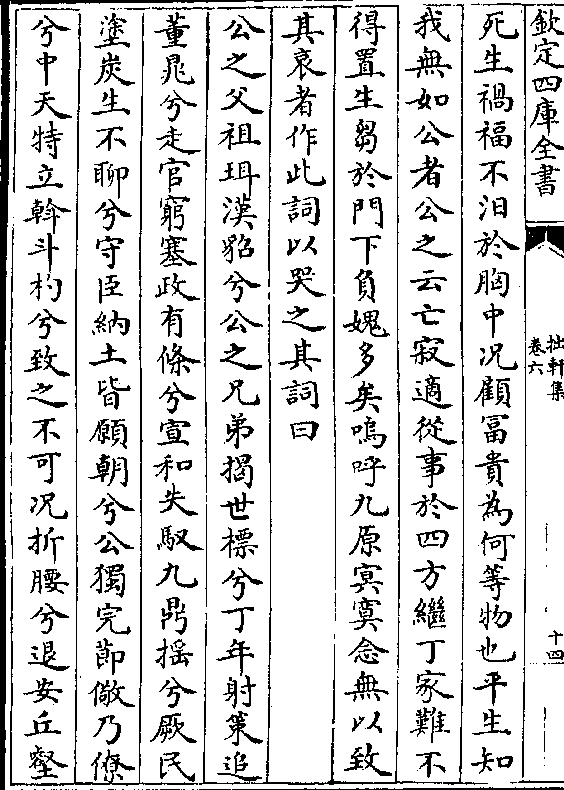 欽定四庫全書
拙軒集
卷六
十四
死生禍福不汨於胸中况顧富貴為何等物也平生知
我無如公者公之云亡寂適從事於四方繼丁家難不
得置生芻於門下負媿多矣嗚呼九原㝠寞念無以致
其哀者作此詞以哭之其詞曰
公之父祖珥漢貂兮公之兄弟揭世標兮丁年射策追
董鼂兮走官窮塞政有條兮宣和失馭九鼎搖兮厥民
塗炭生不聊兮守臣納土皆願朝兮公獨完節儆乃僚
兮中天特立斡斗杓兮致之不可况折腰兮退安丘壑